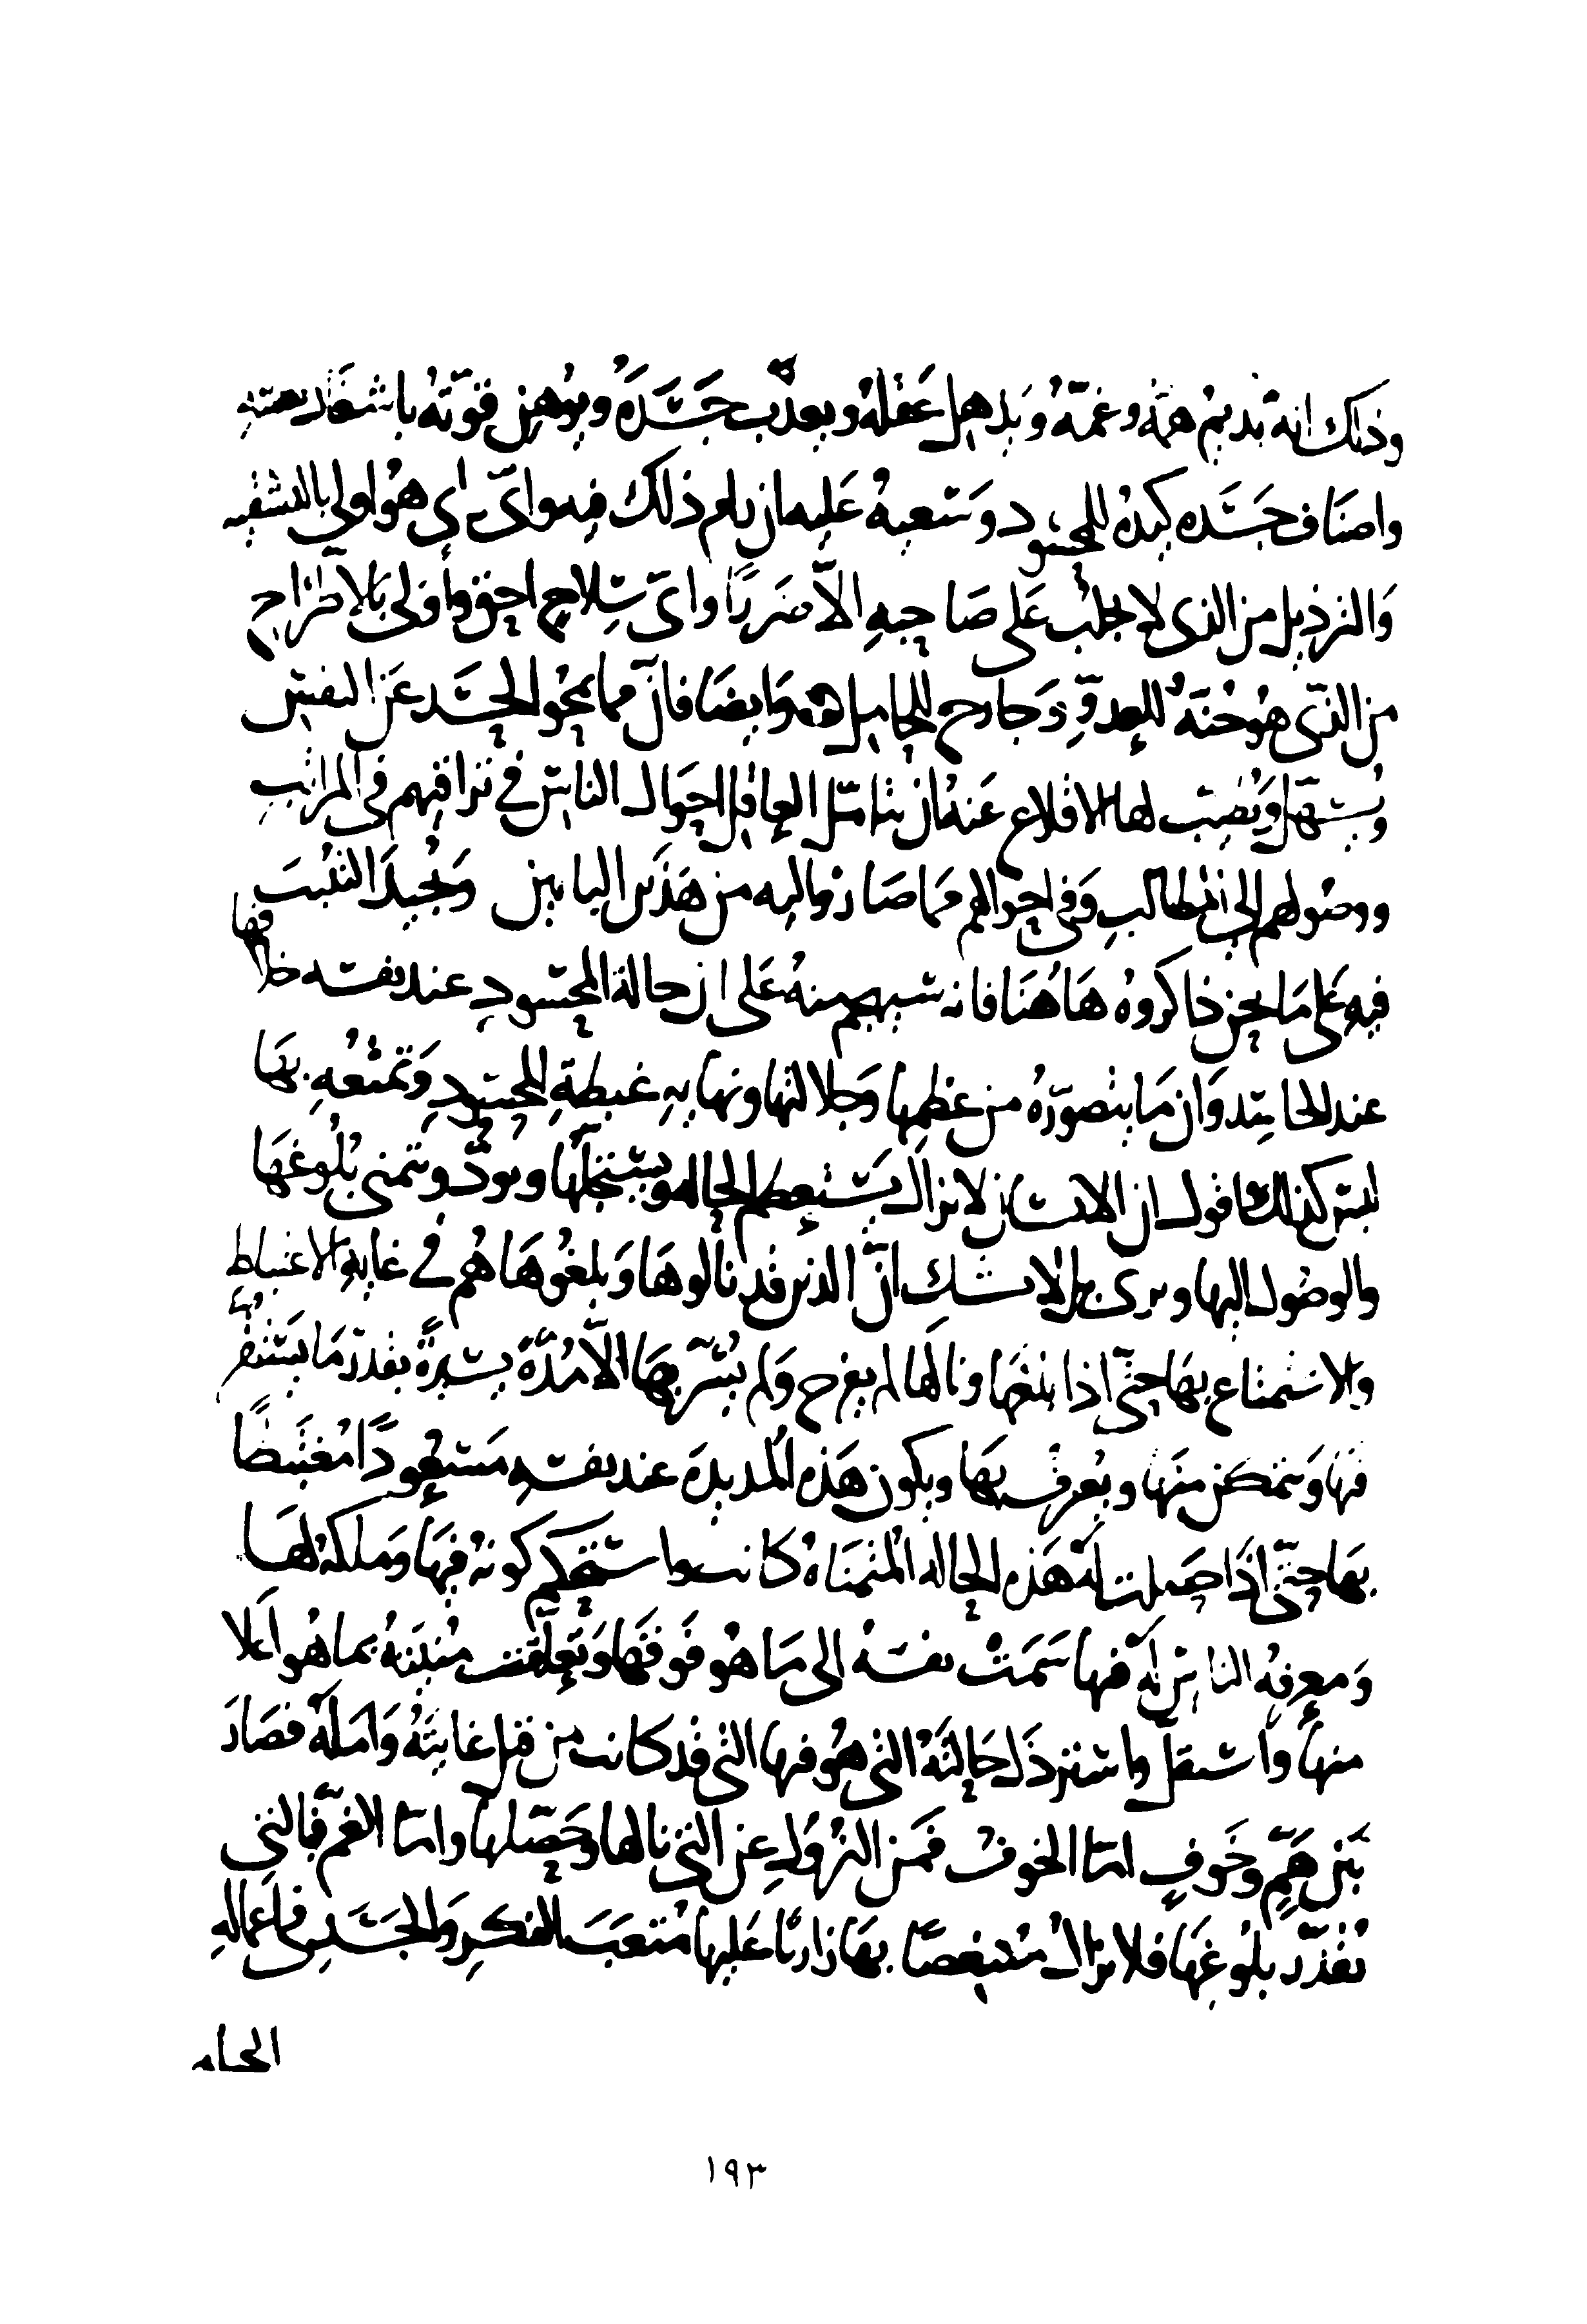 وذلك انه يديم همّه وغمّهُ وَيذهل عَقلهُ ويعذّب جَسَدَهُ ويُوهن قوّتهُ باشغال نفسِهِ
واضعَاف جَسَده كيدهُ للمحسُود وَسَعيهُ عَليه ان رام ذلك فيه واىّ راى هُو اولى بالتسفيه
وَالترذيل من الذى لا يجلب عَلى صَاحِبهِ الاّ ضَررًا واىّ سِلاح احق وأولى بَالإطّراح
من الذى هُو جُنّةٌ للعدوِّ وَجارح للحامِل له وَايضَا فانّ مما يمحُو الحسَد عَن النفس
وُيسَهّل وَيُطيّب لها الاقلاع عَنهُ ان يتامّل العاقِل احوَال الناس فى تراقيهم فى المراتبِ
ووصُولهم الى المطالب وَفى احوالهم مما صَارُوا اليه من هَذَين البابين وَيُجيدَ التثبتَ
فيهِ عَلى مَا نحن ذاكروهُ هَاهُنَا فانه سَيهجم منهُ عَلى ان حالة المحسودِ عند نفسه خلافها
عند الحاسِد وَان مَا يتصوّرهُ من عظمها وَجلالتها ونهايهِ غبطةِ المحسُودِ وَتمتّعُهِ بهَا
ليسَ كذلك اقول ان الانسَان لا يزال يَستَعظم الحاله ويستجلّها ويودّ ويتمنى بُلُوغهَا
والوصُول اليها ويرى بل لا يشك انّ الذين قد نالُوهَا وَبلغُوهَا هُم فى غايهِ الاغتباط
والاستمتاع بهَا حتّى اذا بلغهَا ونالهَا لم يفرح وَلم يُسَرّ بهَا الاّ مُدّةً يسيرةً بقدر مَا يَستقرُّ
فيها وَيتمكن منهَا ويُعرفُ بهَا ويكون هَذه المديدة عند نفسهِ مَسعُودًا مُغتَبطًا
بهَا حتّى اذَا حصَلت لَهُ هَذه الحاله المتمنّاهُ كانت واستحكم كونه فيهَا وَملكهُ لهَا
وَمعرفه الناس لَهُ فيها سَمَتْ نفسَهُ الى مَا هُو فوقهَا وَتعلّقت مُنيَتهُ بما هُو اعلا
منها واستقلّ واسترذَل حَالتَهُ التى هُو فيها التى قد كانت من قبل غايتَهُ وَامَلَهُ فصَارَ
بَين هَمٍّ وخَوفٍ امّا الخوف فمَن النزُولِ عن التى نالها وَحَصّلها وامّا الغمّ فبالتى
يُقدّر بلُوغهَا فلا يزالُ متنغّصًا بهَا زاريًا عَليها مُتعَبَ الفكرِ وَالجَسَدِ فى اعماله
الحيله
١٩٣